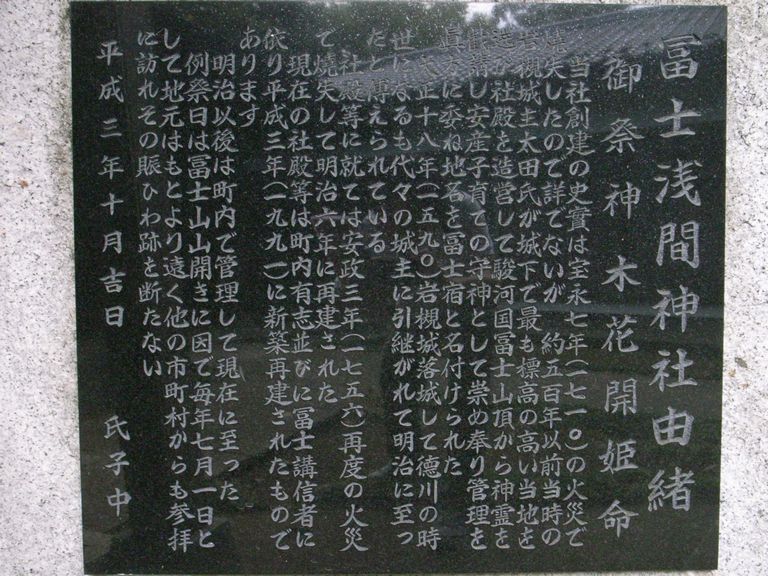 冨士浅間神社由緒
御祭神 木花開姫命
当社創建の史實は宝永七年(一七一〇)の火災で
焼失したので詳でないが 約五百年以前当時の
岩槻城主太田氏が城下で最も標高の高い当地を
選び社殿を造営して駿河国冨士山頂から神霊を
勧請し安産子育ての守神として崇め奉り管理を
眞方に委ね地名を冨士宿と名付けられた
天正十八年(一五九〇)岩槻城落城して徳川の時
世になるも代々の城主に引継がれて明治に至っ
たと傳えられている
社殿等に就ては安政三年(一七五六)再度の火災
て焼失して明治六年に再建された
現在の社殿等は町内有志並びに冨士講信者に
依り平成三年(一九九一)に新築再建されたもので
あります
明治以後は町内で管理して現在に至った
例祭日は冨士山山開きに因で毎年七月一日と
して地元はもとより遠く他の市町村からも参拝
に訪れその賑ひわ跡を断たない
平成三年十月吉日 氏子中